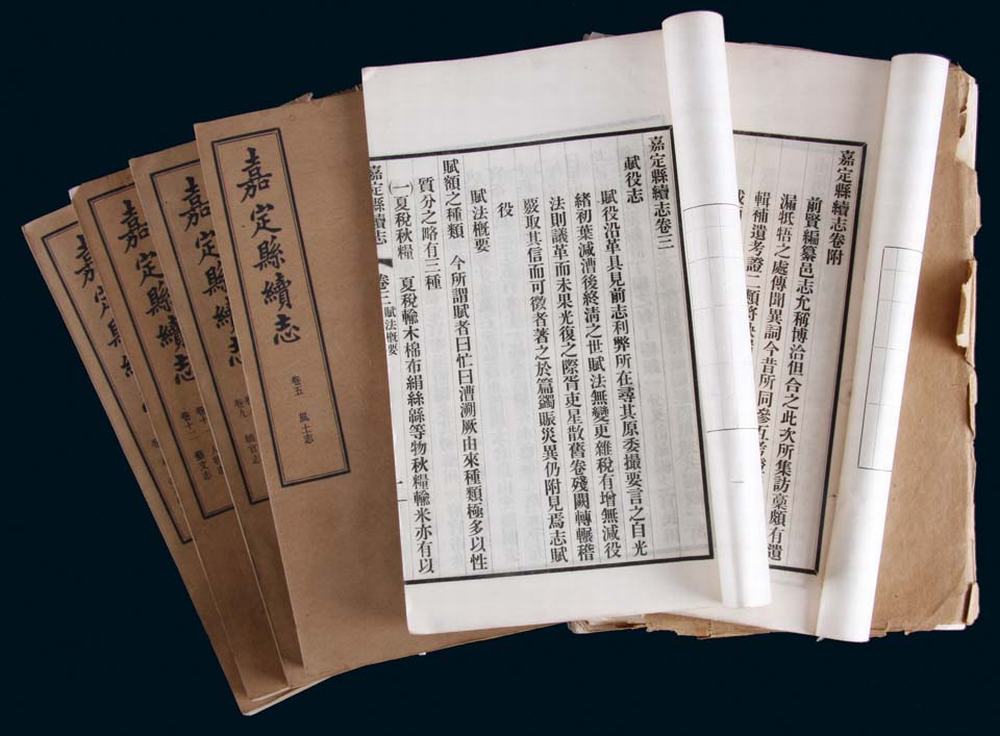 嘉定縣續志卷附
前賢編纂邑志允稱博洽但合之此次所集訪稾頗有遺
漏牴牾之處傳聞異詞今昔所同參互考
輯補遺考證二類
嘉定縣續志卷三
賦役志
賦役沿革具見前志利弊所在尋其原委撮要言之自光
緒初葉減漕後終淸之世賦法無變更雜稅有增無減役
法則議革而未果光復之際胥吏星散舊卷殘闕轉輾稽
覈取其信而可徵者著之於篇蠲賑災異仍附見焉志賦
役
賦法槪要
賦額之種類 今所謂賦者曰忙曰漕溯厥由來種類極多以性
質分之略有三種
(一)夏稅秋糧 夏稅輸木棉布絹絲緜等物秋糧輸米亦有以
嘉定縣續志 卷三 賦法槪要 一
嘉定縣續志
卷五 風土志
嘉定縣續志
卷九 職官志
嘉定縣續志
卷十一 人物志
卷十二 藝文志
嘉定縣